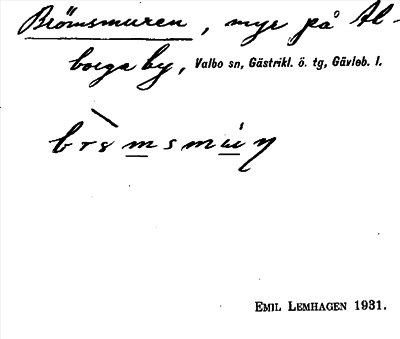 Brömsmuren, myr på Al-
borga by, Valbo sn, Gästrikl. ö. tg, Gävleb. l.
EMIL LEMHAGEN 1931.